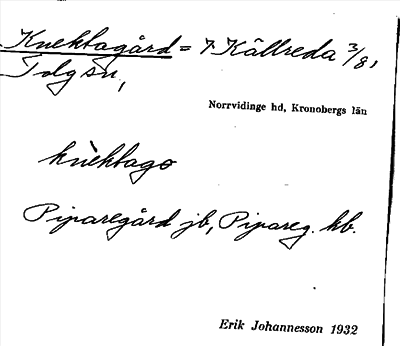 Knektagård = 7 Källreda 3/8,
Tolgsn,
Norrvidinge hd, Kronobergs län
knèktago
Piparegård jb, Pipareg. kb.
Erik Johannesson 1932